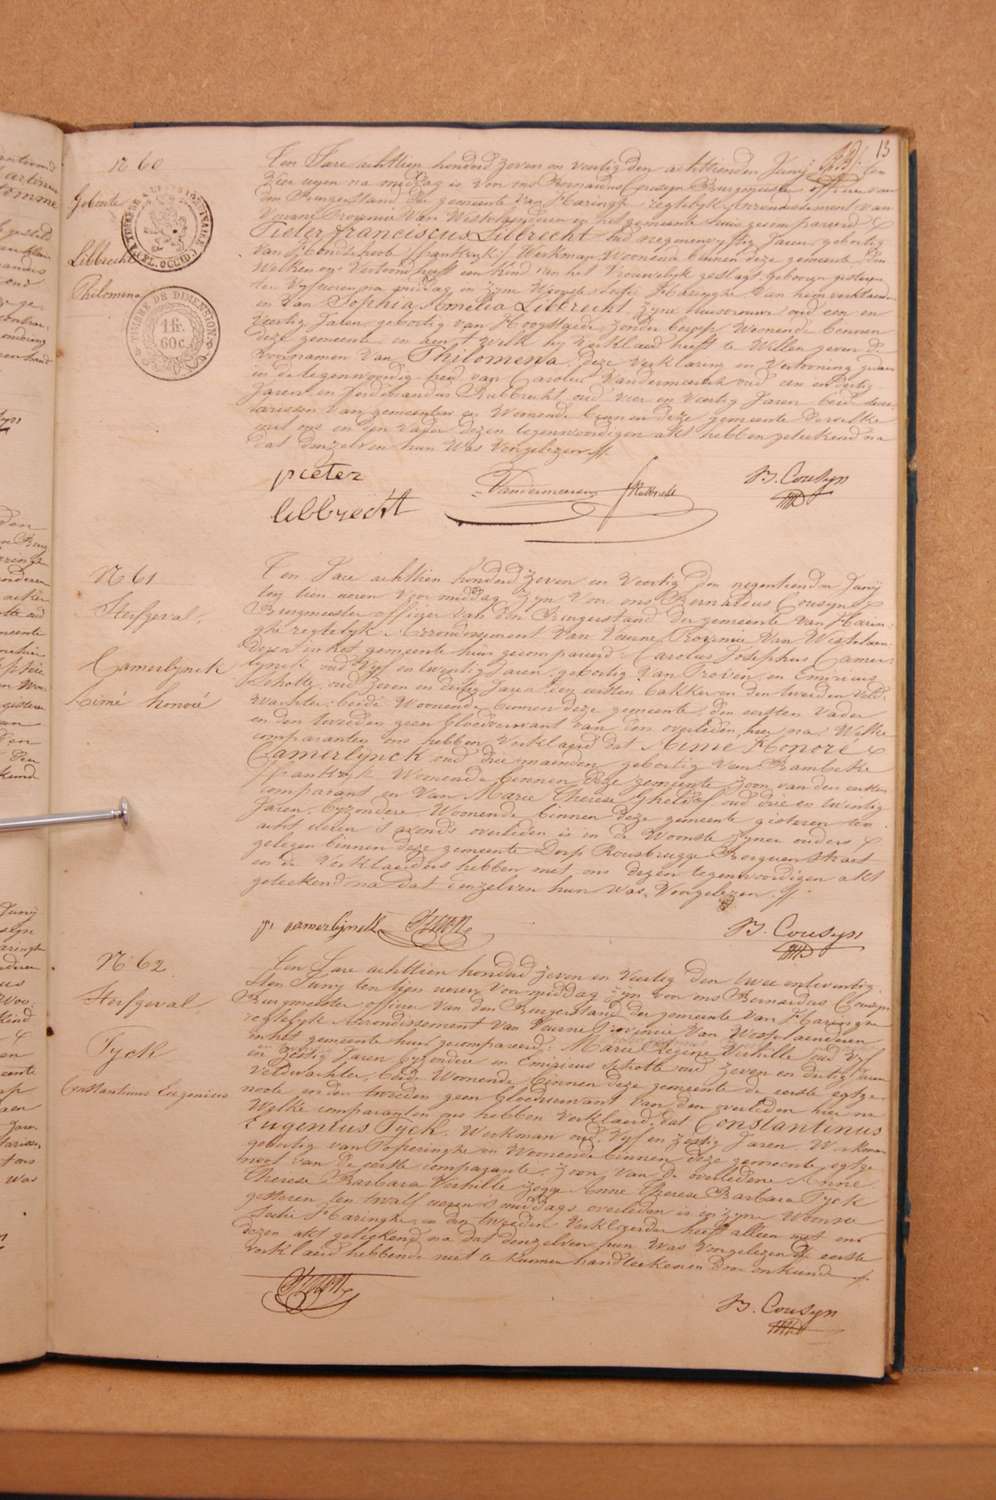 13
N 60
Geboorte
Libbrecht
Philomena
TIMBRE DE DIMENSION
1 fr.
60 c.
Ten Jare achttien honderd zeven en veertig den achttienden Juny ten
vier uren na middag is voor ons Bernardus Cousyn Burgmeester officier van
den Burgerstand der gemeente van Haringhe regtelyk Arrondissement van
Veurne Provincie van Westvlaenderen in het gemeente huis gecompareerd
Pieter Franciscus Libbrecht oud negenenvyftig Jaren geboortig
van Hondschoote frankryk Werkman Woonende binnen deze gemeente den
Welken ons Vertoond heeft een Kind van het Vrouwelyk geslagt geboren gisteren
ten Vyf uren na middag in zyne Woonste Sectie Haringhe Van hem verklaerder
en Van Sophia Amelia Libbrecht zyne huisvrouwe oud een en
veertig Jaren geboortig van Hooghlede zonder beroep Woonende binnen
deze gemeente en aen 't Welk hy verklaerd heeft te Willen geven de
Voornamen Van Philomena. Deze Verklaring en Vertooning gedaen
in de tegenwoordigheid van Carolus Vandermeersch oud een en dertig
Jaren en Ferdinandus Rubbrecht oud vier en Veertig Jaren beide
Van gemeenten en Woonende binnen deze gemeente dewelke
met ons en den vader dezen tegenwoordigen akt hebben geteekend na
dat denzelven hun Was Voorgelezen
pieter
libbrecht
Vandermeersch
B. Cousyn
N 61
Sterfgeval.
Camerlynck
Aimé honoré
Ten Jare achttien honderd Zeven en Veertig den negentienden Juny
ten tien uren Voor middag zyn Voor ons Bernardus Cousyn
Burgmeester officier van den Burgerstand der gemeente van Harin-
ghe regtelyk Arrondissement Van Veurne Provincie Van Westvlaen-
deren in het gemeente huis gecompareerd Carolus Josephus Camer-
lynck oud Vyf en twintig Jaren geboortig van Proven en Emiricus
Scholtz oud Zeven en dertig Jaren den eersten bakker en den tweeden Veld-
wachter beide Woonende binnen deze gemeente, den eersten Vader
en den tweeden geen bloedverwant van den overleden hier na Welke
comparanten ons hebben Verklaerd dat Aimé Honoré
Camerlynck oud drie maenden geboortig Van Rambeke
frankryk Woonende binnen deze gemeente zoon van den eersten
comparant en Van Marie Therese Gheldof oud drie en twintig
Jaren, byzondere Woonende binnen deze gemeente gisteren ten
acht uren s'avonds overleden is in de Woonste zyner ouders
gelegen binnen deze gemeente Dorp Rousbrugge Berguen straet
en de Verklaerders hebben met ons dezen tegenwoordigen akt
geteekend na dat denzelven hun Was Voorgelezen.
camerlynck
B. Cousyn
N 62.
Sterfgeval
Tyck
Constantinus Eugenius
Ten Jare achttien honderd Zeven en Veertig den twee entwintig-
sten Juny ten tien uren Voor middag Zyn voor ons Bernardus Cousyn
Burgmeester officier Van den Burgerstand der gemeente van Haringhe
regtelyk Arrondissement van Veurne Provincie Van Westvlaenderen
in het gemeente huis gecompareerd: Marie Regine Verhille oud Vyf
en Zestig Jaren byzondere en Emiricus Scholtz oud Zeven en dertig Jaren
Veldwachter, beide Woonende binnen deze gemeente de eerste egtge-
noote en den tweeden geen bloedverwant van den overleden hier na
Welke comparanten ons hebben Verklaerd dat Constantinus
Eugenius Tyck, Werkman oud Vyf en Zestig Jaren Werkman
geboortig van Poperinghe en Woonende binnen deze gemeente egtge-
noot van de eerste comparante, zoon van de overledene Anne
Therese Barbara Verhille zegge Anne Therese Barbara Tyck
gisteren ten twalf uren s'middags overleden is in zyne Woonste
Sectie Haringhe en den tweeden Verklaerder heeft alleen met ons
dezen akt geteekend na dat denzelven hun Was Voorgelezen de eerste
verklaerd hebbende niet te kunnen handteekenen door onkunde
B. Cousyn